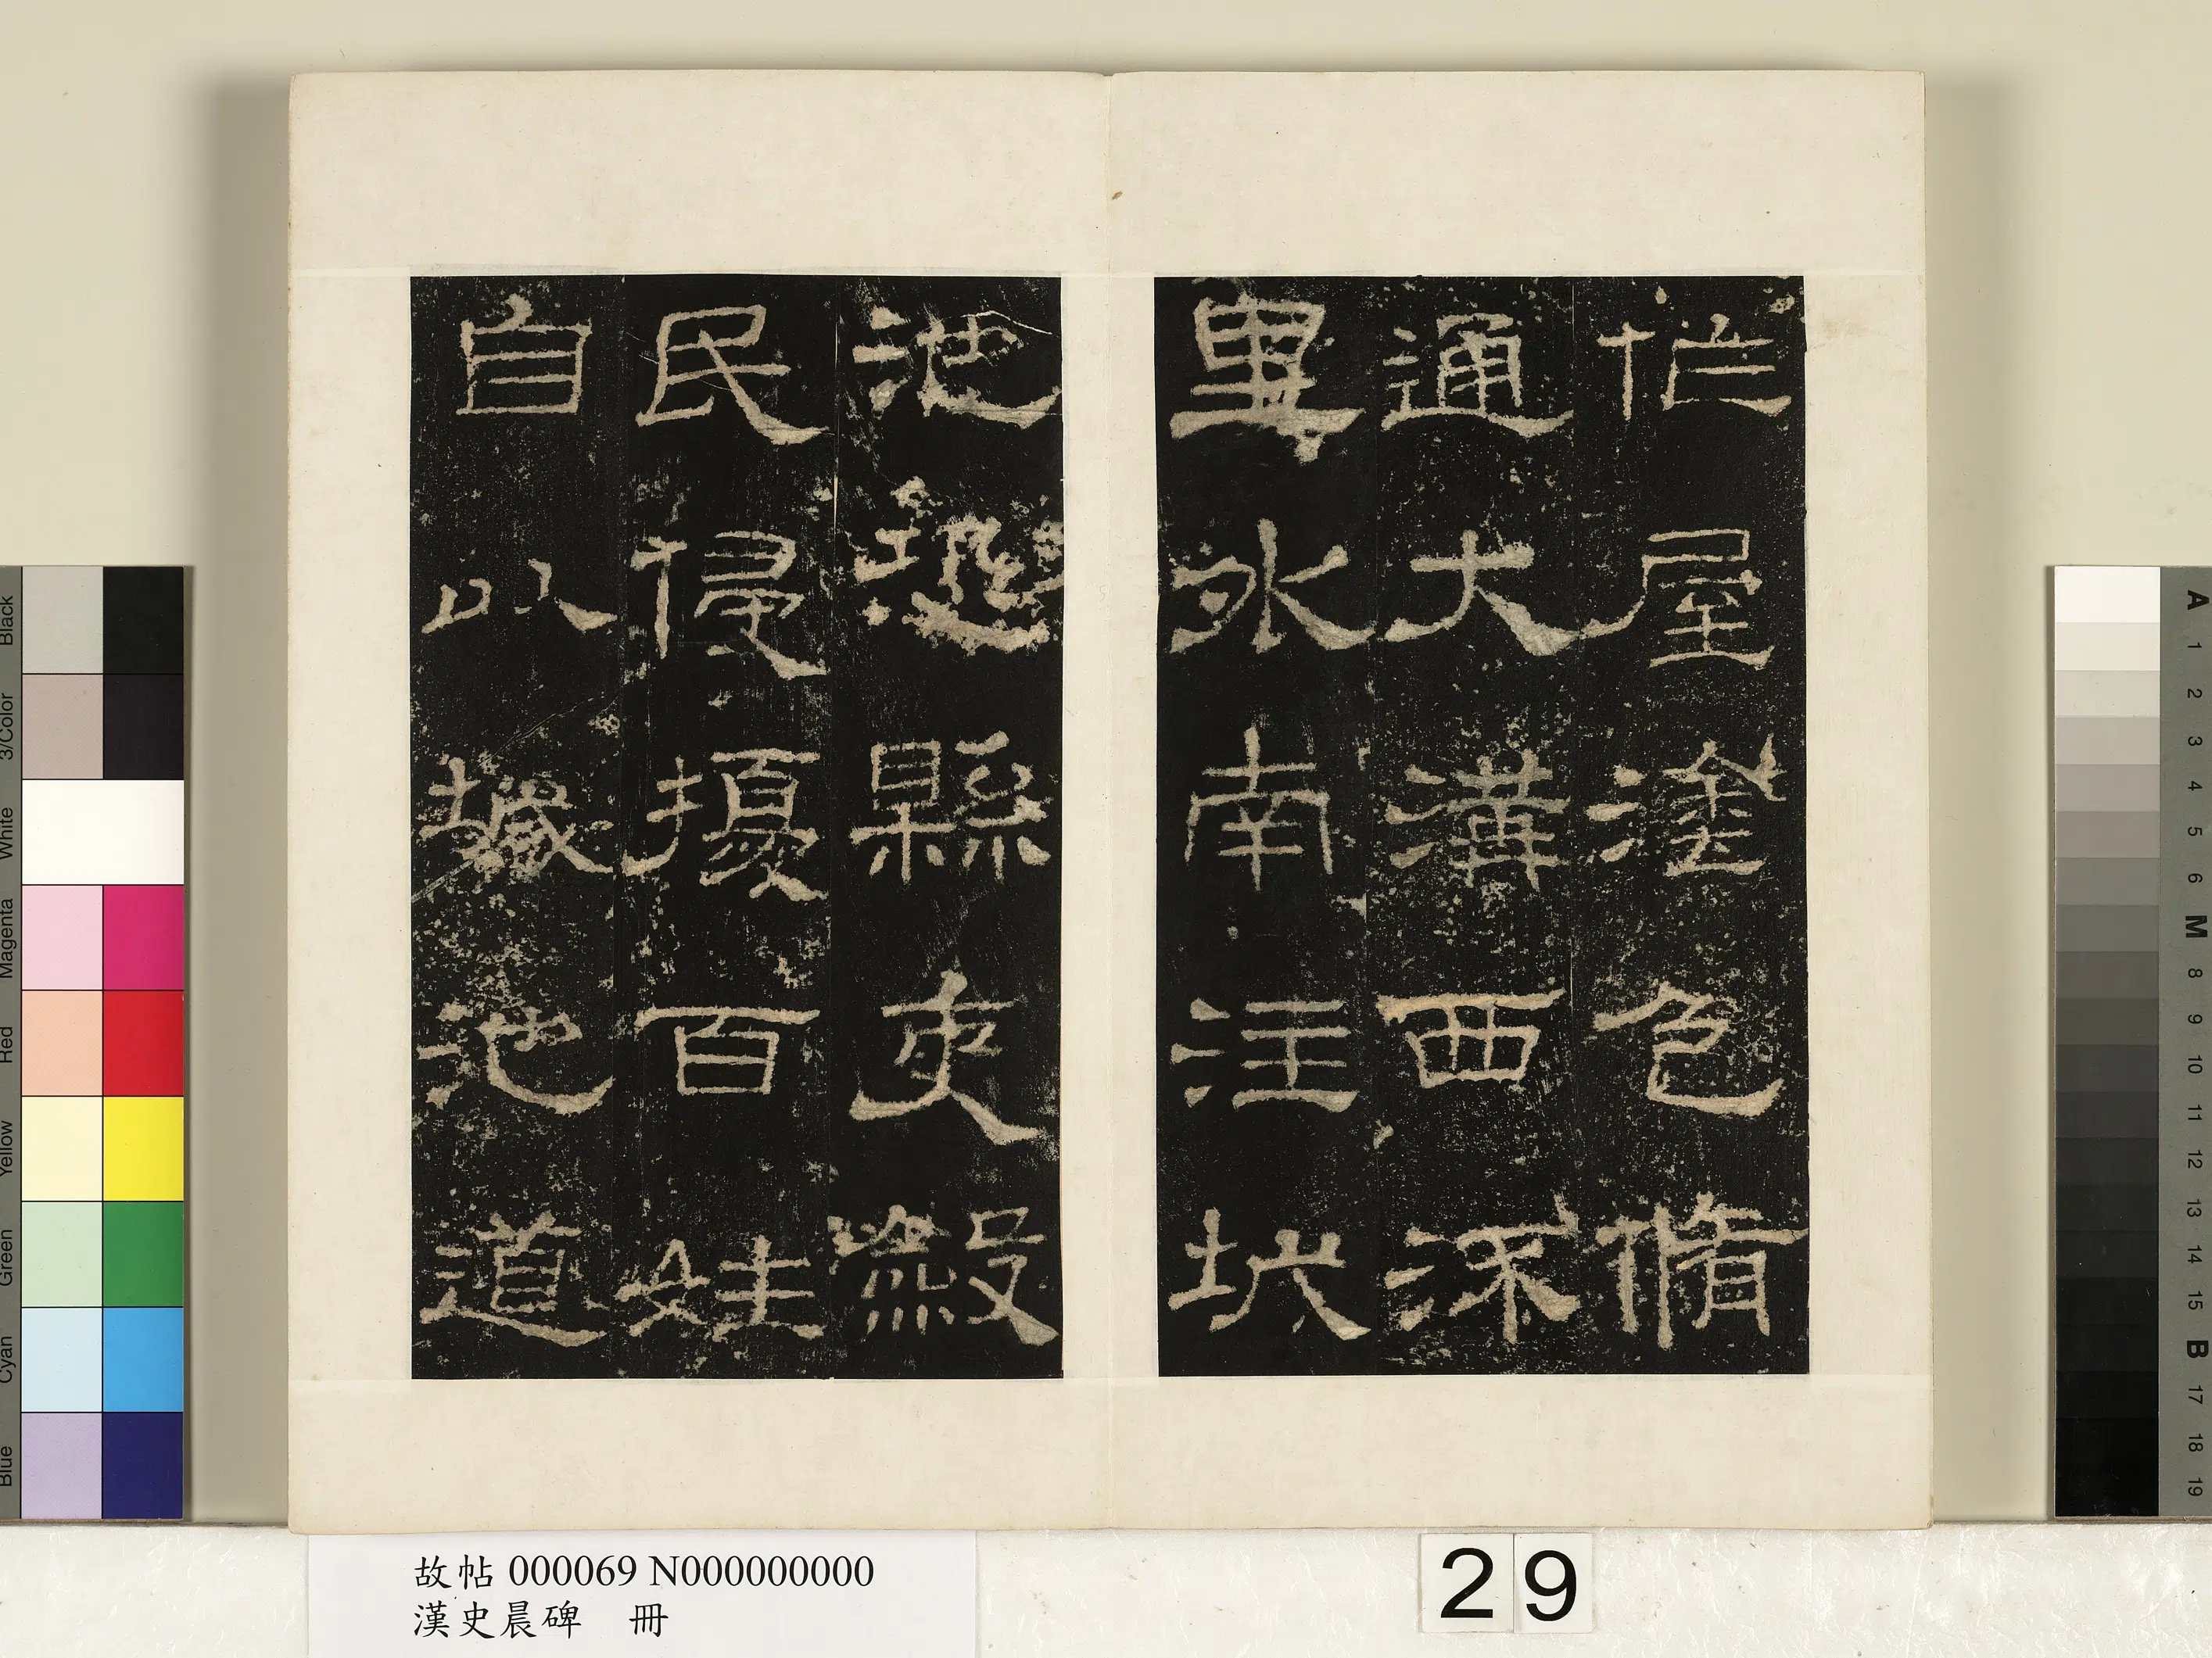 作屋塗色脩
通大溝西流
里外南注城
池恐縣吏斂
民侵擾百姓
自以城池道
故帖 000069 N000000000
漢史晨碑 冊
29
Black
3/Color
White
Magenta
Red
Yellow
Green
Cyan
Blue
A
1
2
3
4
5
6
M
8
9
10
11
12
13
14
15
B
17
18
19